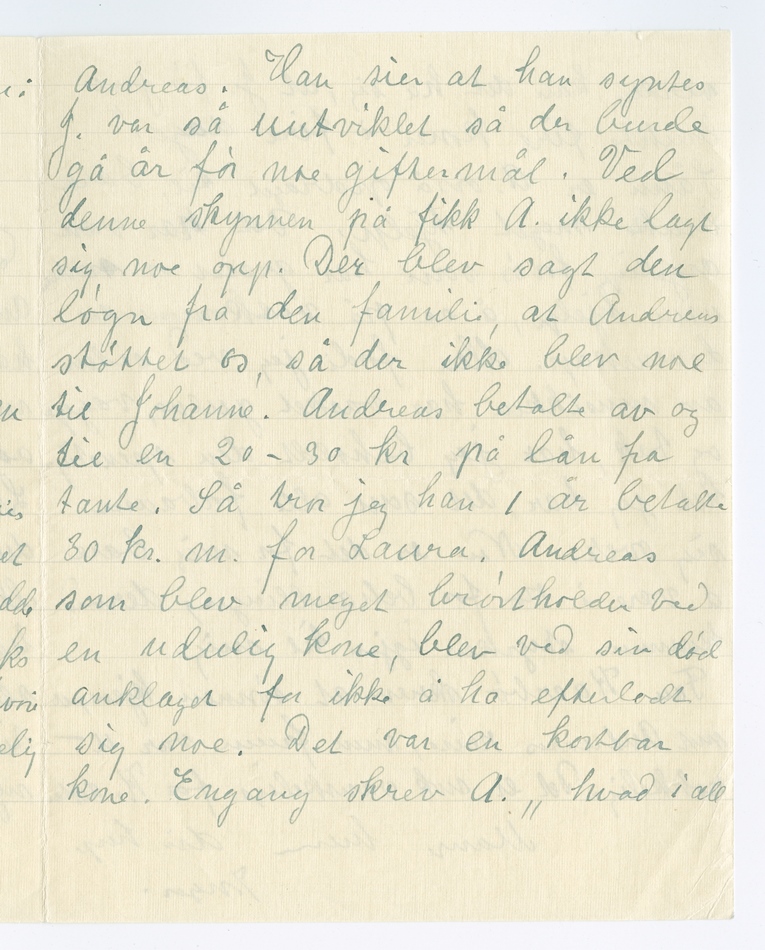 Andreas. Han sier at han syntes
J. var så uutviklet så der burde
gå år før noe giftermål. Ved
denne skynnen på fikk A. ikke lagt
sig noe opp. Der blev sagt den
løgn fra den familie, at Andreas
støttet os, så der ikke blev noe
til Johanne. Andreas betalte av og
til en 20-30 kr på lån fra
tante. Så tror jeg han 1 år betalte
30 kr. m. for Laura. Andreas
som blev meget
ved
en udulig kone, blev ved sin død
anklaget for ikke å ha efterladt
sig noe. Det var en kostbar
kone. Engang skrev A. „ hvad i all